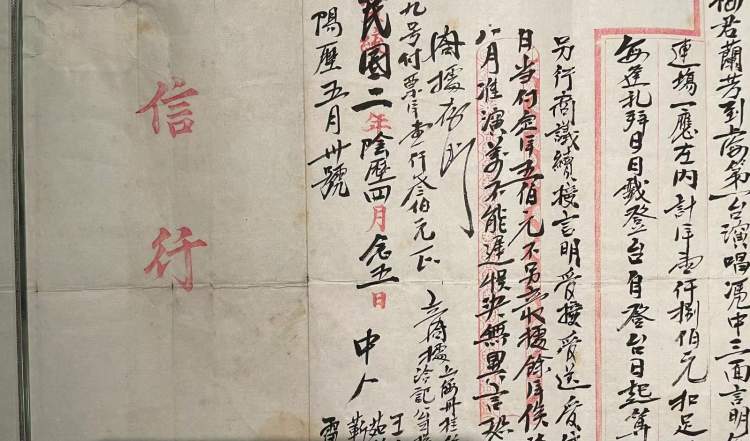 君蘭芳到滬第一台演唱憑中三面言明
連場一應在內計洋壹仟捌佰元扣足
每逢礼拜日日戲登台自登台日起算
另行商議續接言明受接受送受
日当付定洋五佰元不另立收據餘洋俟
八月准演萬不能遲悞決無異言恐
據存照
立 據上海丹桂
九号付票洋壹仟叁佰元正
民國二年陰歷四月念五日 中人
陽歷五月卅號
信行